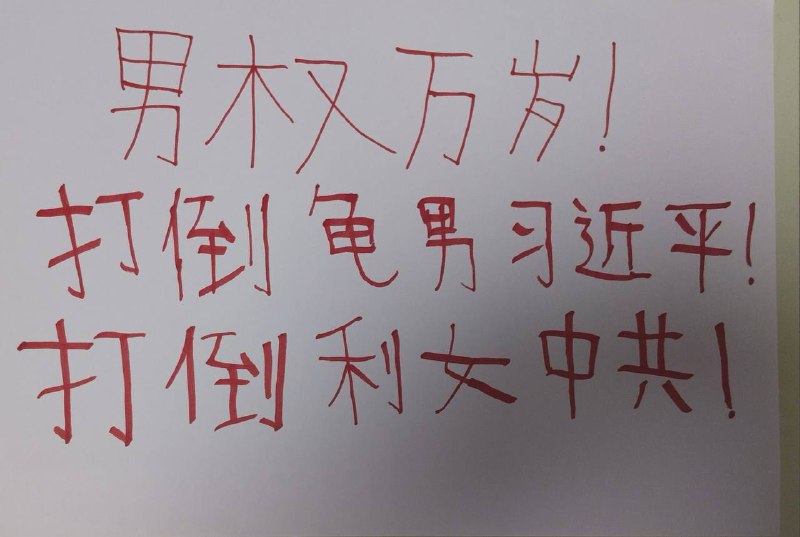 男权万岁!
打倒龟男习近平!
打倒利女中共!